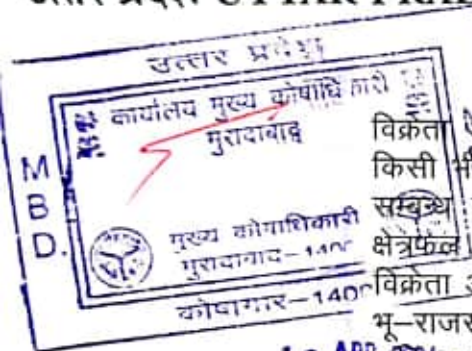 उत्तर प्रदेश UTTAR PRA
उत्तर प्रदेश
कार्यालय मुख्य कोषाधिकारी
मुरादाबाद
M
B
D.
मुख्य कोषाधिकारी
मुरादाबाद-140
कोषागार-140
विक्रेता
किसी भी
सम्बन्ध
क्षेत्रफल
विक्रेता
भू-राजस
APR